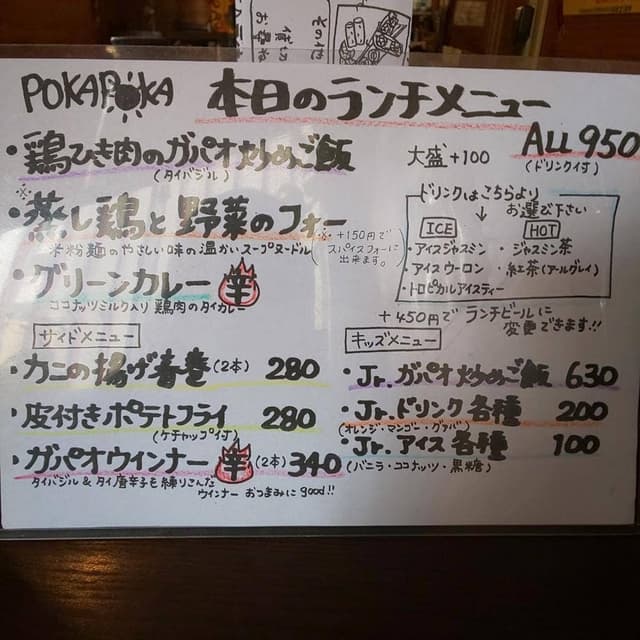 POKAPOKA 本日のランチメニュー
ALL 950
(ドリンク付)
・鶏ひき肉のガパオ炒めご飯
(タイバジル)
大盛+100
※
・蒸し鶏と野菜のフォー
米粉麺のやさしい味の温かいスープヌードル
(※+150円で
スパイスフォーに
出来ます。)
・グリーンカレー 辛
ココナッツミルク入り 鶏肉のタイカレー
ドリンクはこちらより
↓ お選び下さい
ICE HOT
・アイスジャスミン ・ジャスミン茶
・アイスウーロン ・紅茶(アールグレイ)
・トロピカルアイスティー
+450円で ランチビールに
変更できます!!
サイドメニュー
・カニの揚げ春巻(2本) 280
・皮付きポテトフライ 280
(ケチャップ付)
・ガパオウインナー 辛 (2本) 340
タイバジル & タイ唐辛子も練りこんだ
ウインナー おつまみに good!!
キッズメニュー
・Jr.ガパオ炒めご飯 630
・Jr.ドリンク各種 200
(オレンジ・マンゴー・グァバ)
・Jr.アイス各種 100
(バニラ・ココナッツ・黒糖)